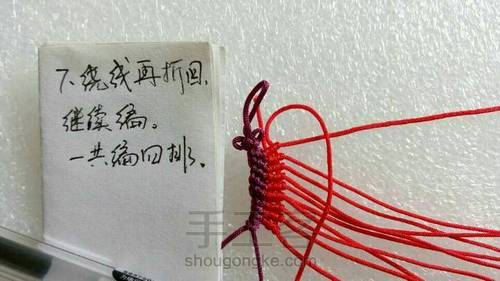 7、绕线再折回,
继续编。
一共编四排、
手工客
shougongke.com